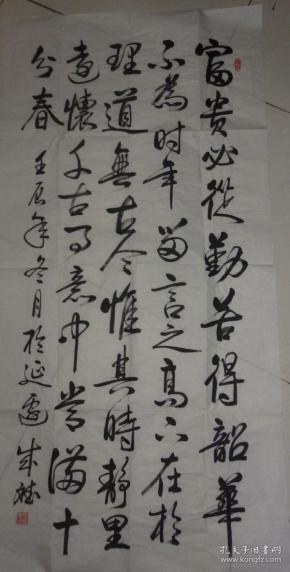 富貴必從勤苦得韶華
不為时年留言之高下在於
理道無古今惟其時靜里
遠懷千古事意中常满十
分春 壬辰年冬月於延邊 成林
孔夫子旧书网